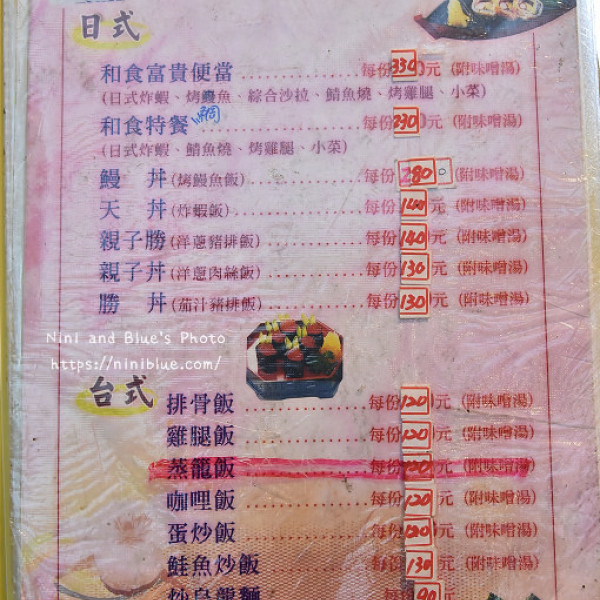 日式
和食富貴便當 ............ 每份330元 (附味噌湯)
(日式炸蝦、烤鰻魚、綜合沙拉、鯖魚燒、烤雞腿、小菜)
和食特餐 ............ 每份230元 (附味噌湯)
(日式炸蝦、鯖魚燒、烤雞腿、小菜)
鰻 丼 (烤鰻魚飯) ............ 每份280元 (附味噌湯)
天 丼 (炸蝦飯) ............ 每份140元 (附味噌湯)
親子勝 (洋蔥豬排飯) ............ 每份140元 (附味噌湯)
親子丼 (洋蔥肉絲飯) ............ 每份130元 (附味噌湯)
勝 丼 (茄汁豬排飯) ............ 每份130元 (附味噌湯)
Nini and Blue's Photo
https://niniblue.com/
台式
排骨飯 ............ 每份120元 (附味噌湯)
雞腿飯 ............ 每份120元 (附味噌湯)
蒸籠飯 ............ 每份120元 (附味噌湯)
咖哩飯 ............ 每份120元 (附味噌湯)
蛋炒飯 ............ 每份120元 (附味噌湯)
鮭魚炒飯 ............ 每份130元 (附味噌湯)
炒烏龍麵 ............ 每份90元